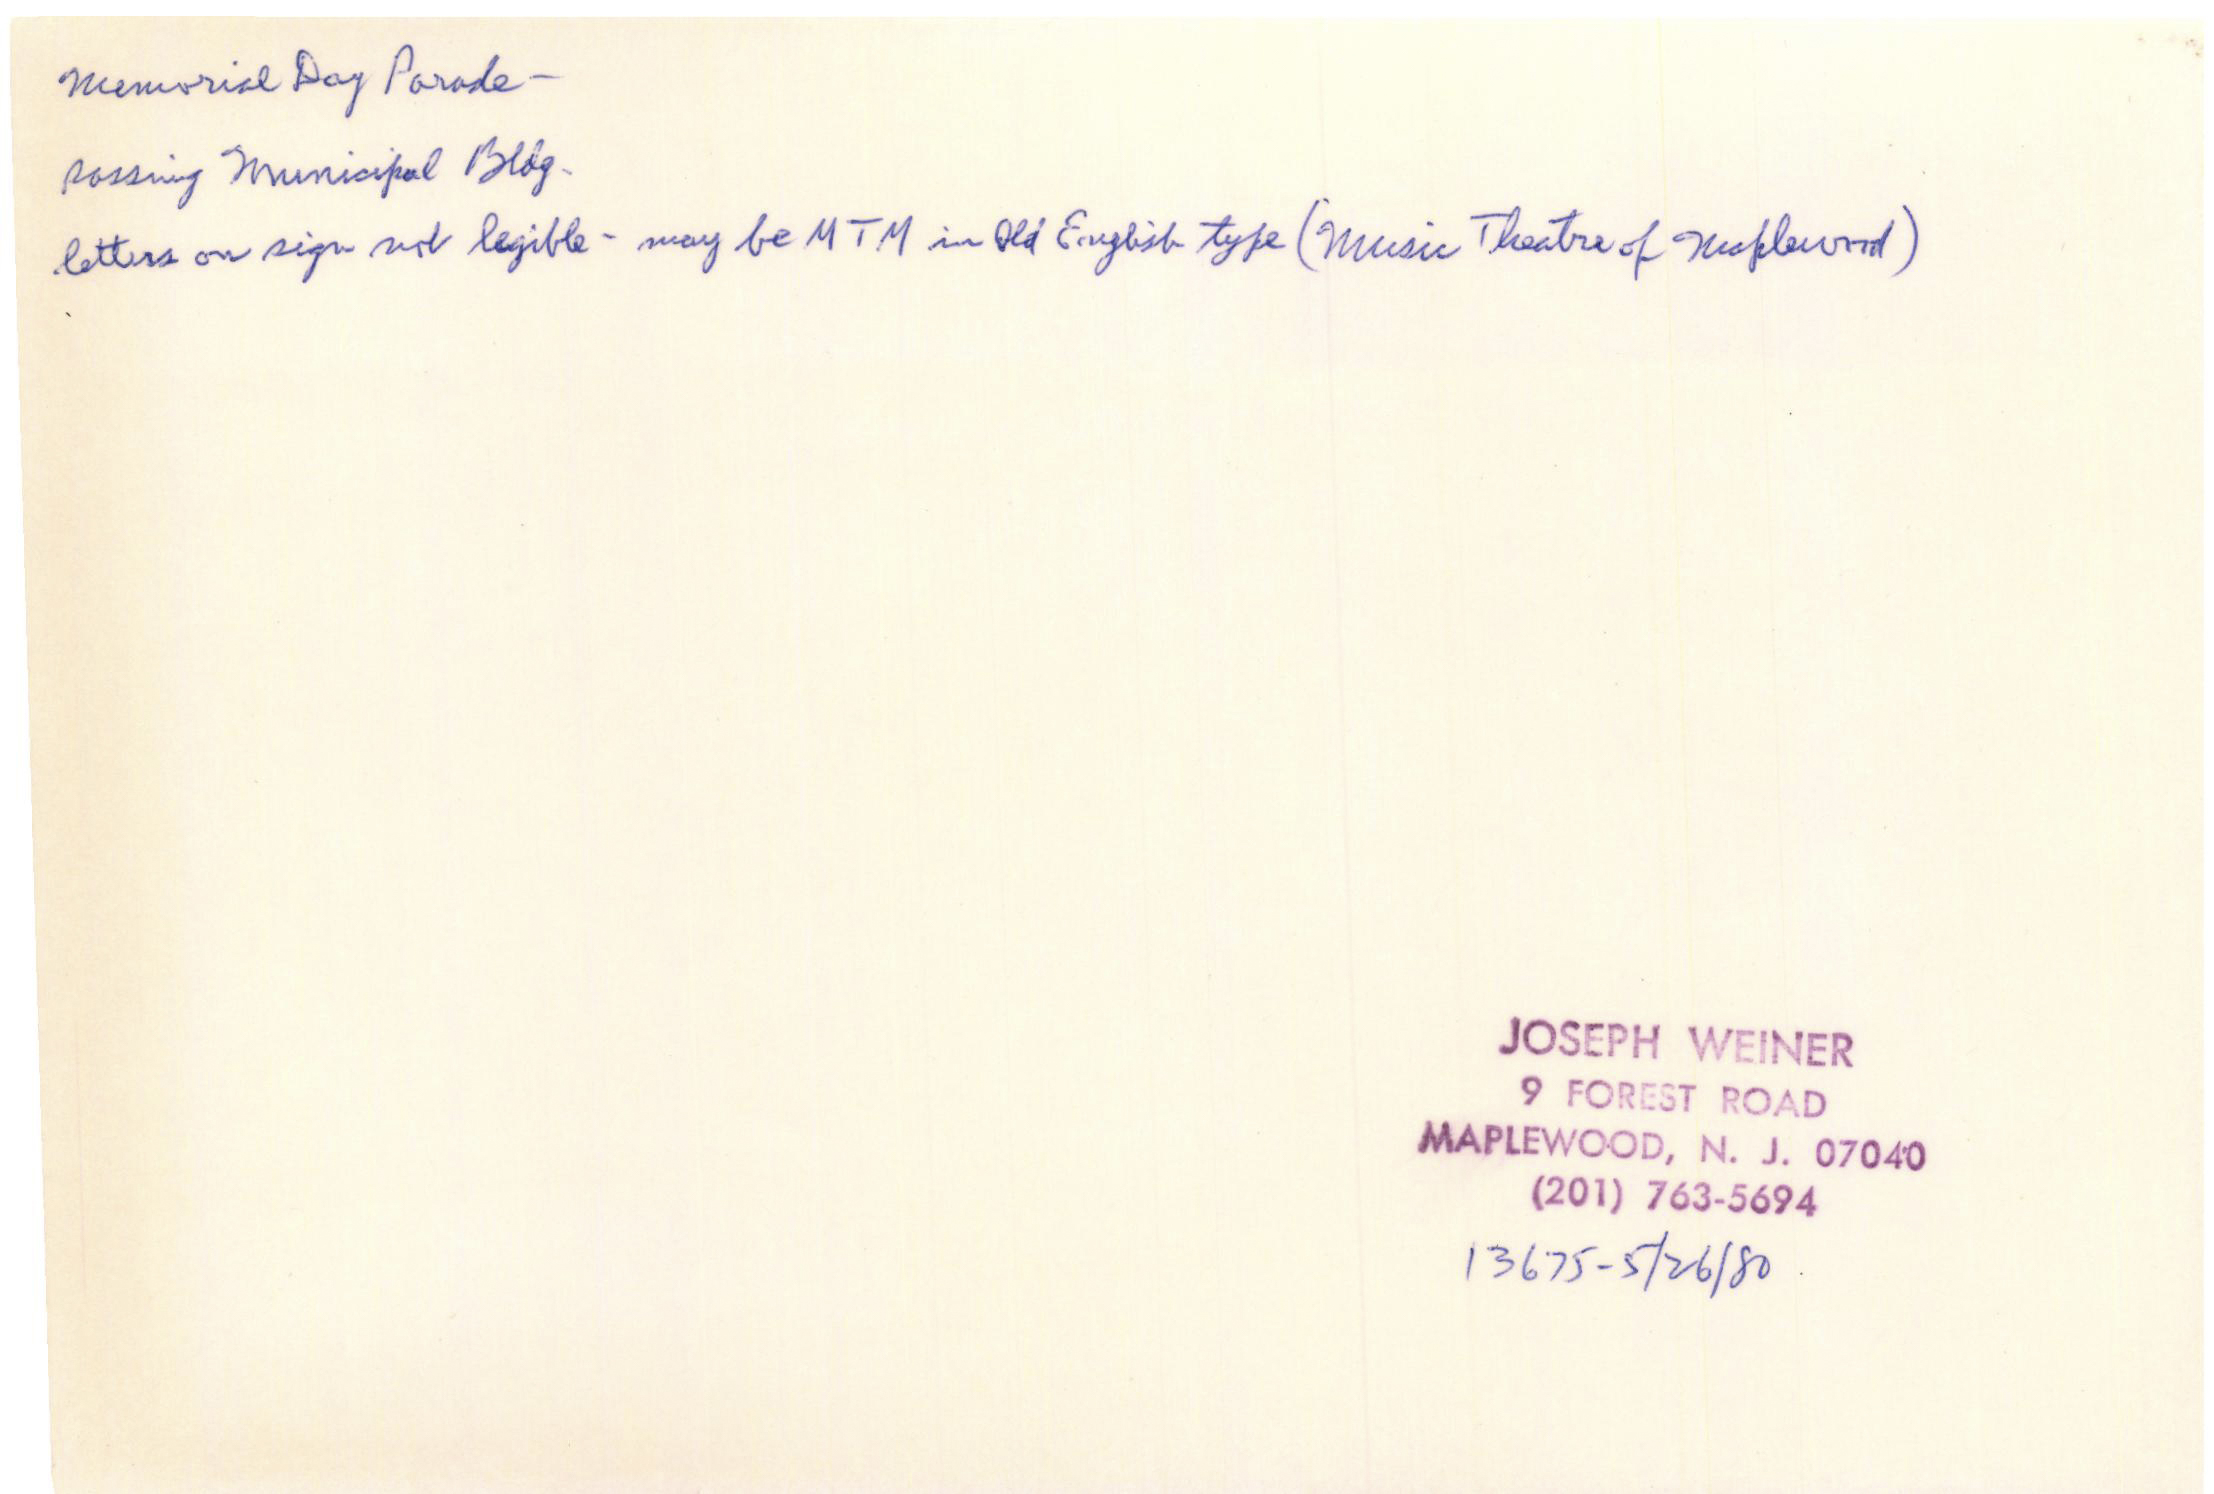 Memorial Day Parade -
passing Municipal Bldg.
letters on sign not legible - may be MTM in Old English type (Music Theatre of Maplewood)
JOSEPH WEINER
9 FOREST ROAD
MAPLEWOOD, N. J. 07040
(201) 763-5694
13675-5/26/80